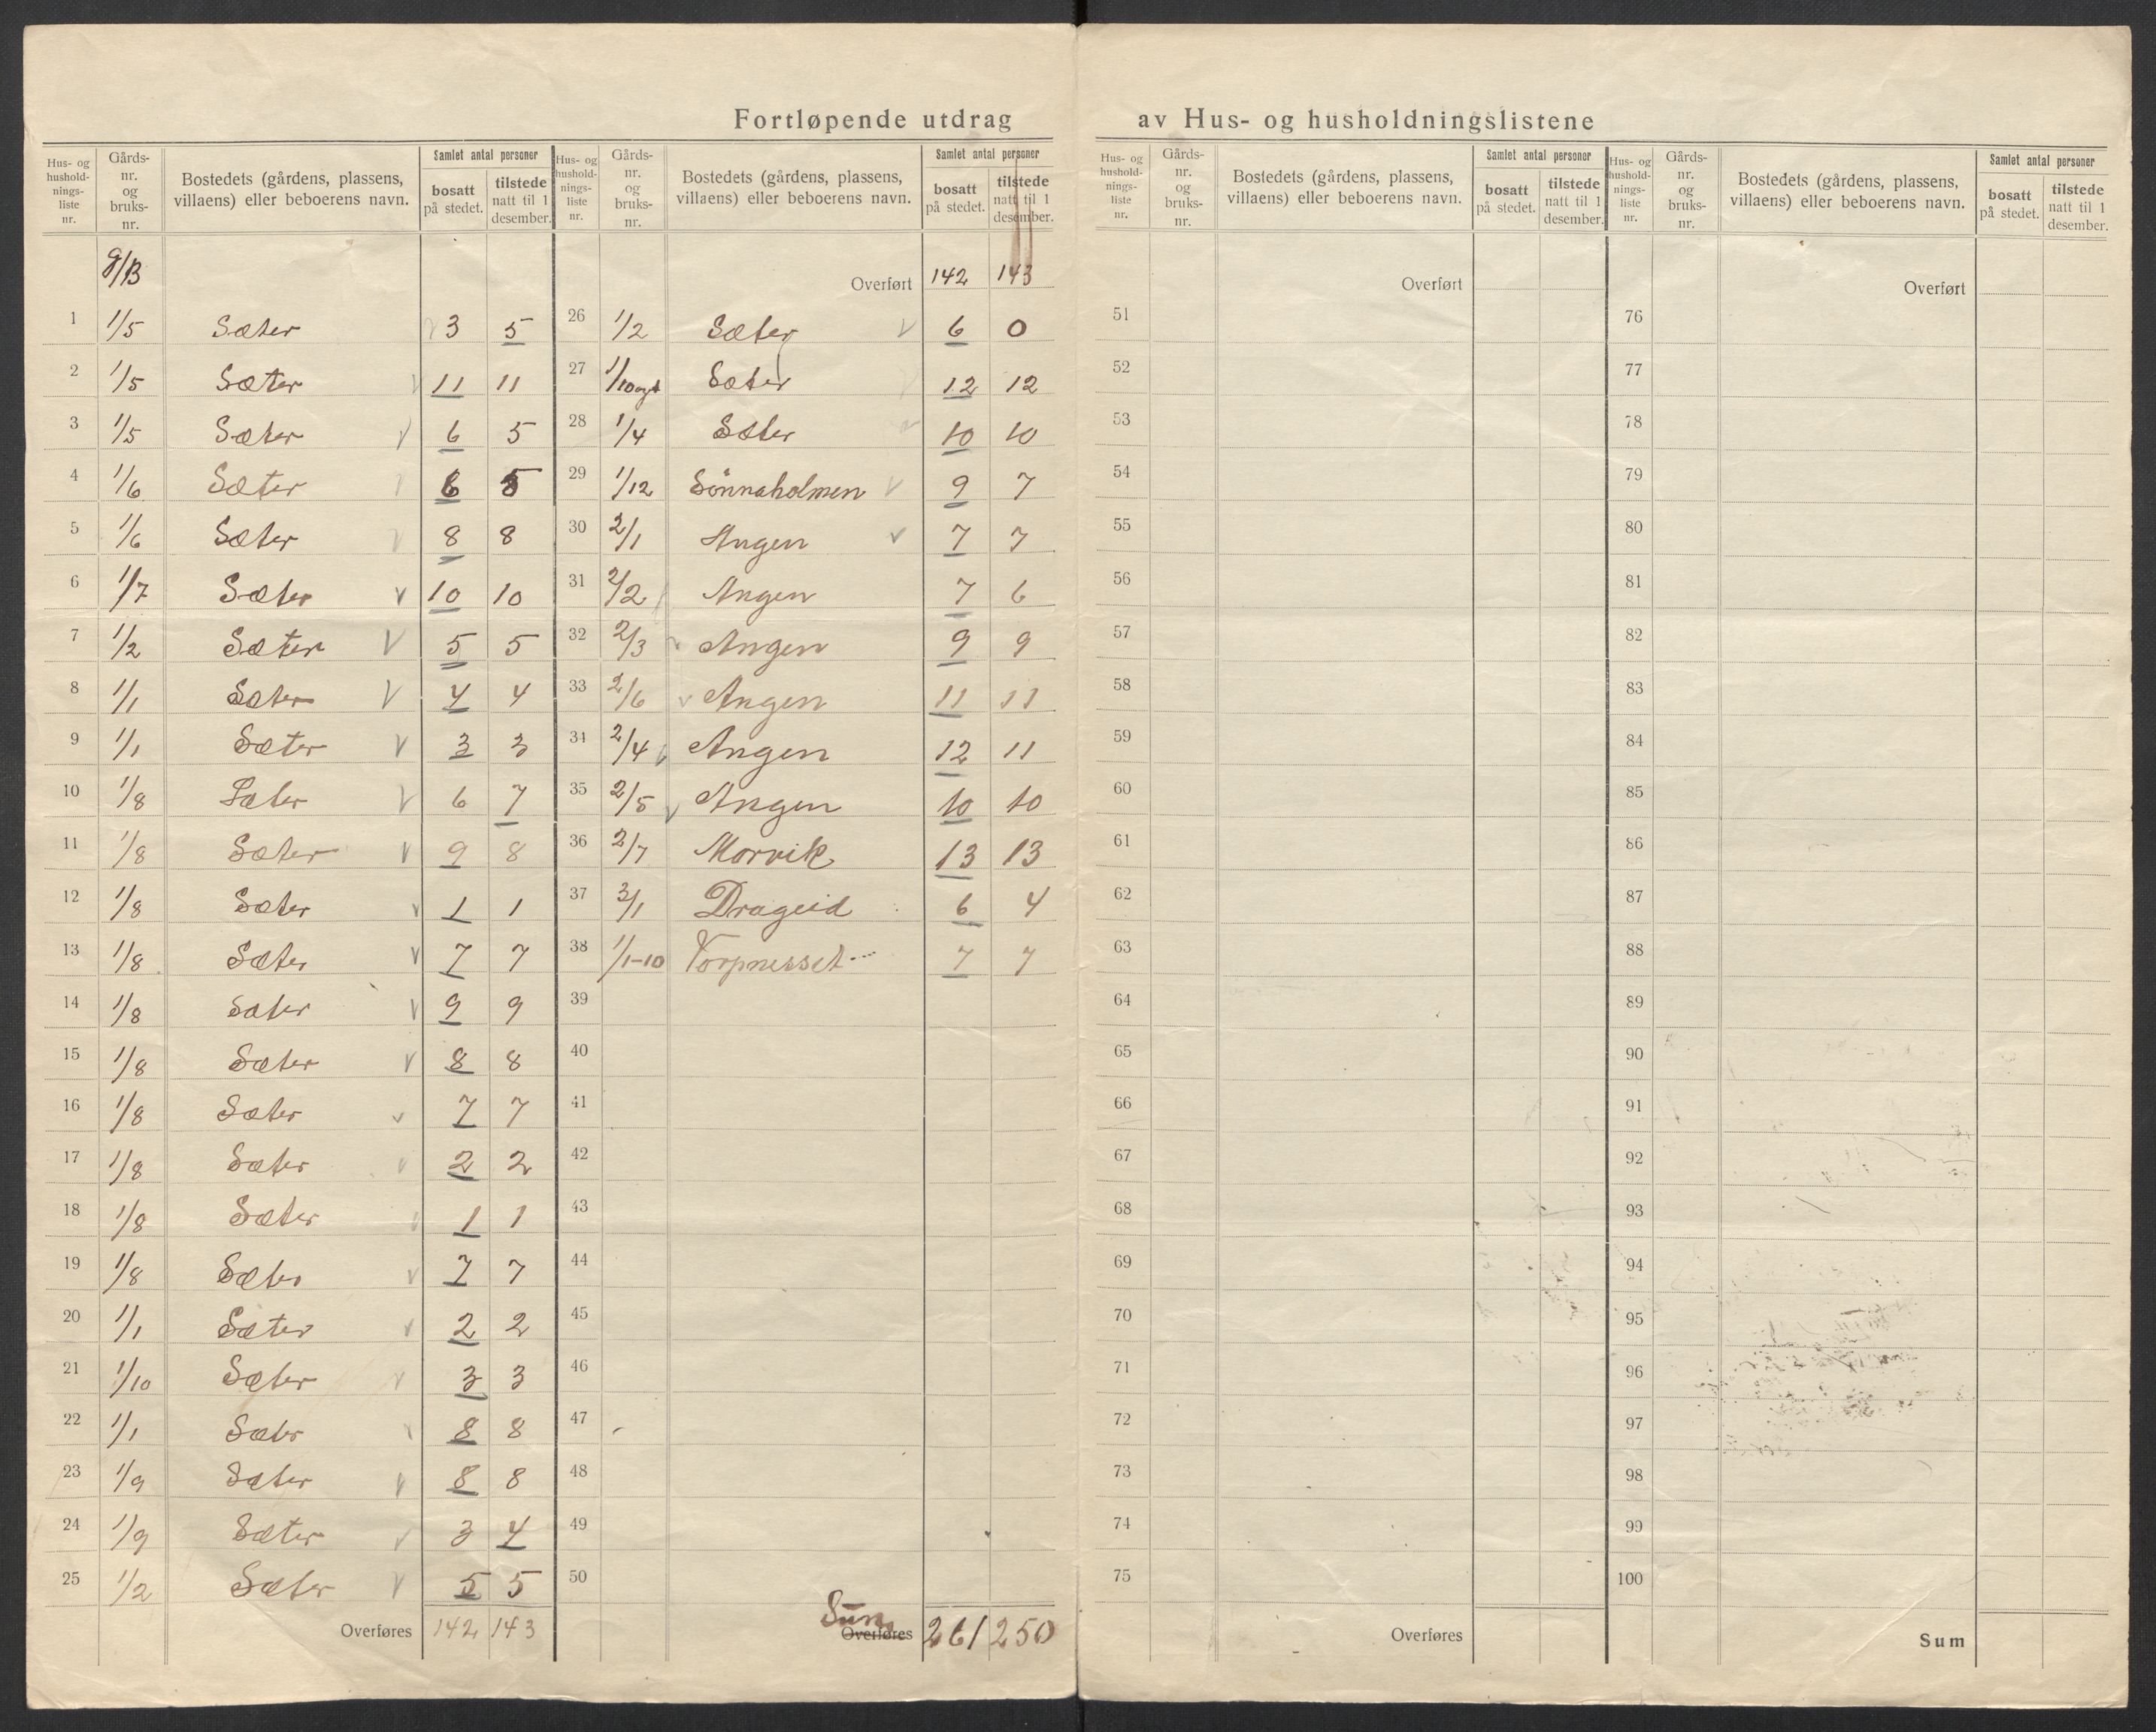 Fortløpende utdrag av Hus- og husholdningslistene
Hus- og husholdnings-liste nr. | Gårds-nr. og bruks-nr. | Bostedets (gårdens, plassens, villaens) eller beboerens navn. | Samlet antal personer | bosatt på stedet. | tilstede natt til 1 desember.
g/B
1 1/5 Sæter 3 5
2 1/5 Sæter 11 11
3 1/5 Sæter 6 5
4 1/6 Sæter 6 5
5 1/6 Sæter 8 8
6 1/7 Sæter 10 10
7 1/2 Sæter 5 5
8 1/1 Sæter 4 4
9 1/1 Sæter 3 3
10 1/8 Sæter 6 7
11 1/8 Sæter 9 8
12 1/8 Sæter 1 1
13 1/8 Sæter 7 7
14 1/8 Sæter 9 9
15 1/8 Sæter 8 8
16 1/8 Sæter 7 7
17 1/8 Sæter 2 2
18 1/8 Sæter 1 1
19 1/8 Sæter 7 7
20 1/1 Sæter 2 2
21 1/10 Sæter 3 3
22 1/1 Sæter 8 8
23 1/9 Sæter 8 8
24 1/9 Sæter 3 4
25 1/2 Sæter 5 5
Overføres 142 143
Hus- og husholdnings-liste nr. | Gårds-nr. og bruks-nr. | Bostedets (gårdens, plassens, villaens) eller beboerens navn. | Samlet antal personer | bosatt på stedet. | tilstede natt til 1 desember.
Overført 142 143
26 1/2 Sæter 6 0
27 1/10 Sæter 12 12
28 1/4 Sæter 10 10
29 1/12 Sönnaholmen 9 7
30 2/1 Angen 7 7
31 2/2 Angen 7 6
32 2/3 Angen 9 9
33 2/6 Angen 11 11
34 2/4 Angen 12 11
35 2/5 Angen 10 10
36 2/7 Morvik 13 13
37 3/1 Drageid 6 4
38 1/1-10 Torpnesset 7 7
39
40
41
42
43
44
45
46
47
48
49
50
Sum Overføres 261 250
Hus- og husholdnings-liste nr. | Gårds-nr. og bruks-nr. | Bostedets (gårdens, plassens, villaens) eller beboerens navn. | Samlet antal personer | bosatt på stedet. | tilstede natt til 1 desember.
Overført
51
52
53
54
55
56
57
58
59
60
61
62
63
64
65
66
67
68
69
70
71
72
73
74
75
Overføres
Hus- og husholdnings-liste nr. | Gårds-nr. og bruks-nr. | Bostedets (gårdens, plassens, villaens) eller beboerens navn. | Samlet antal personer | bosatt på stedet. | tilstede natt til 1 desember.
Overført
76
77
78
79
80
81
82
83
84
85
86
87
88
89
90
91
92
93
94
95
96
97
98
99
100
Sum